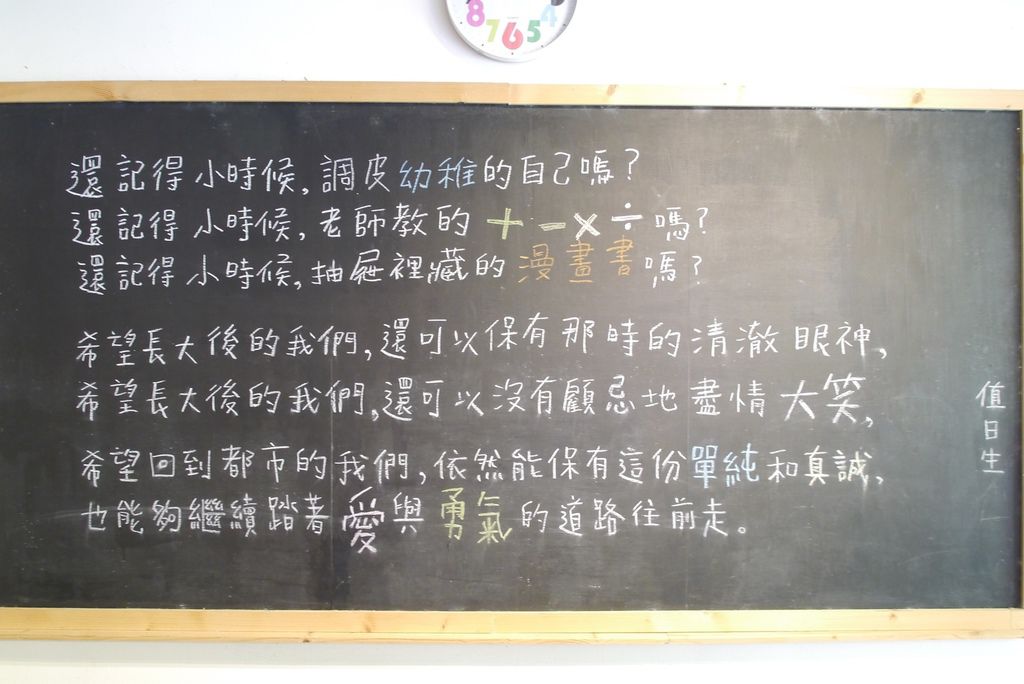 8 7 6 5 4
還記得小時候,調皮幼稚的自己嗎?
還記得小時候,老師教的 + - × ÷ 嗎?
還記得小時候,抽屜裡藏的漫畫書嗎?
希望長大後的我們,還可以保有那時的清澈眼神,
希望長大後的我們,還可以沒有顧忌地盡情大笑,
希望回到都市的我們,依然能保有這份單純和真誠,
也能夠繼續踏著愛與勇氣的道路往前走。
值日生